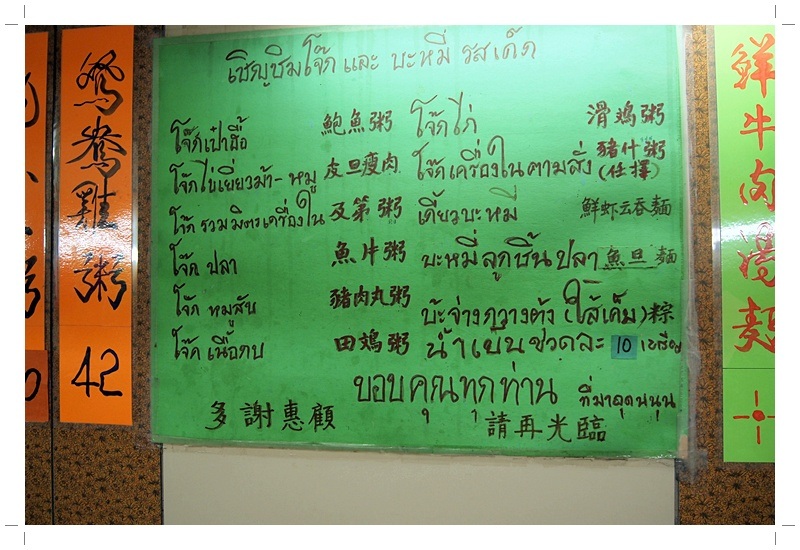 鴛鴦雞粥
42
เชิญชิมโจ๊กและ บะหมี่ รสเด็ด
โจ๊กเป๋าฮื้อ 鮑魚粥 โจ๊กไก่ 滑鸡粥
โจ๊กไข่เยี่ยวม้า-หมู 皮旦瘦肉 โจ๊กเครื่องในตามสั่ง 豬什粥(任擇)
โจ๊กรวมมิตรเครื่องใน 及第粥 เกี้ยวบะหมี่ 鮮虾云吞麵
โจ๊ก ปลา 魚片粥 บะหมี่ลูกชิ้นปลา 魚旦麵
โจ๊ก หมูสับ 豬肉丸粥 บ๊ะจ่างกวางตุ้ง (ไส้เค็ม) 粽
โจ๊ก เนื้อกบ 田鸡粥 น้ำเย็นขวดละ 10 เหรียญ
ขอบคุณทุกท่าน ที่มาอุดหนุน
多謝惠顧 請再光臨
鮮牛肉撈麵